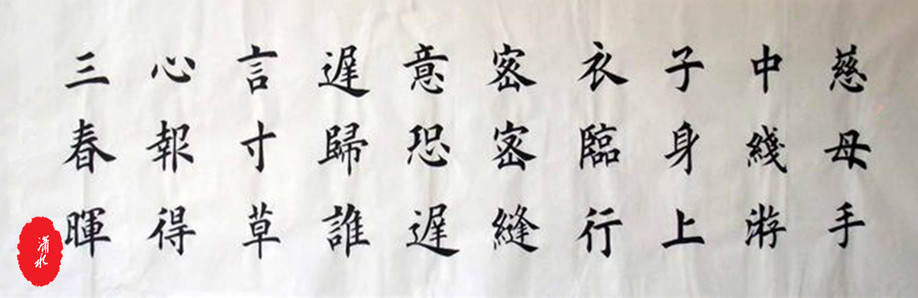 慈母手
中綫游
子身上
衣臨行
密密縫
意恐遲
遲歸誰
言寸草
心報得
三春暉
瀟水